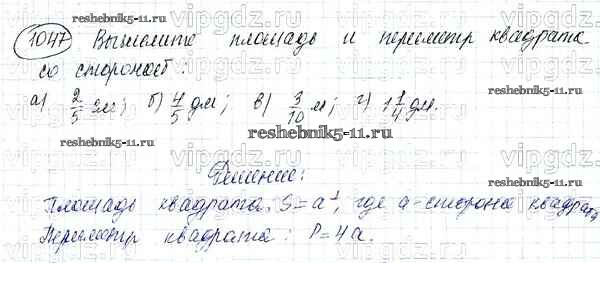 reshebnik5-11.ru
1047 Вычислите площадь и периметр квадрата
со стороной:
а) 2/5 см; б) 4/5 дм; в) 3/10 м; г) 1 1/4 дм.
reshebnik5-11.ru
Решение:
reshebnik5-11.ru
Площадь квадрата: S = a², где a - сторона квадрата
Периметр квадрата: P = 4a.
reshebnik5-11.ru